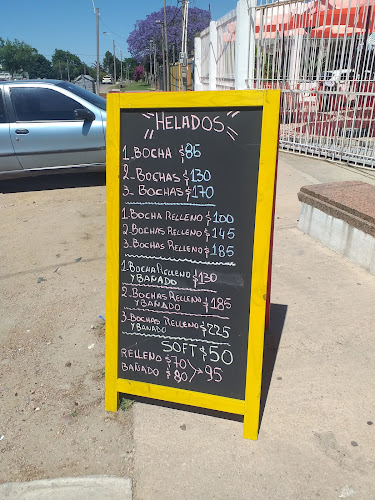 "HELADOS"
1_BOCHA $86
2_BOCHAS $130
3_BOCHAS $170
1_BOCHA RELLENO $100
2_BOCHAS RELLENO $145
3_BOCHAS RELLENO $185
1_BOCHA RELLENO $130
Y BAÑADO
2_BOCHAS RELLENO $185
Y BAÑADO
3_BOCHAS RELLENO $225
Y BAÑADO
SOFT $50
RELLENO $70
BAÑADO $80 > $95